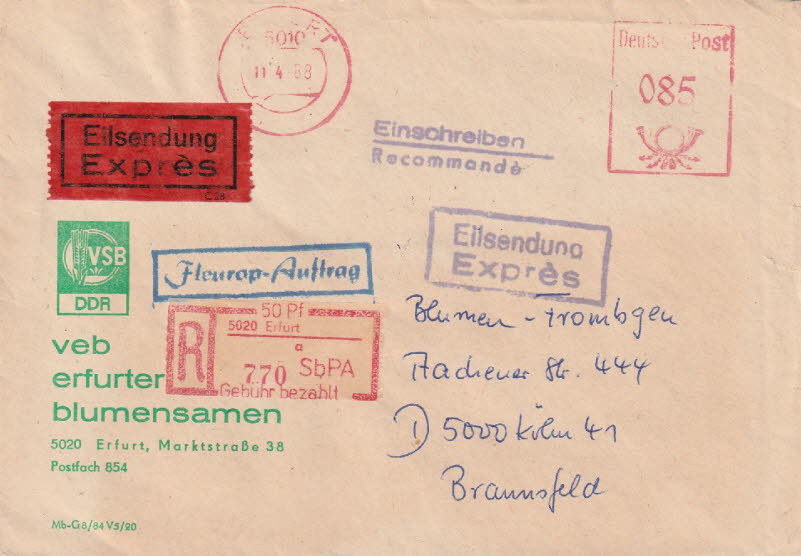 5010
11 4 88
Deutsche Post
085
Eilsendung
Exprès
C 28
Einschreiben
Recommandé
VSB
DDR
Fleurop-Auftrag
Eilsendung
Exprès
50 Pf
R
5020 Erfurt
a
770 SbPA
Gebühr bezahlt
veb
erfurter
blumensamen
5020 Erfurt, Marktstraße 38
Postfach 854
Mb-G8/84 V5/20
Blumen - Trombgen
Aachener Str. 444
D 5000 Köln 41
Braunsfeld